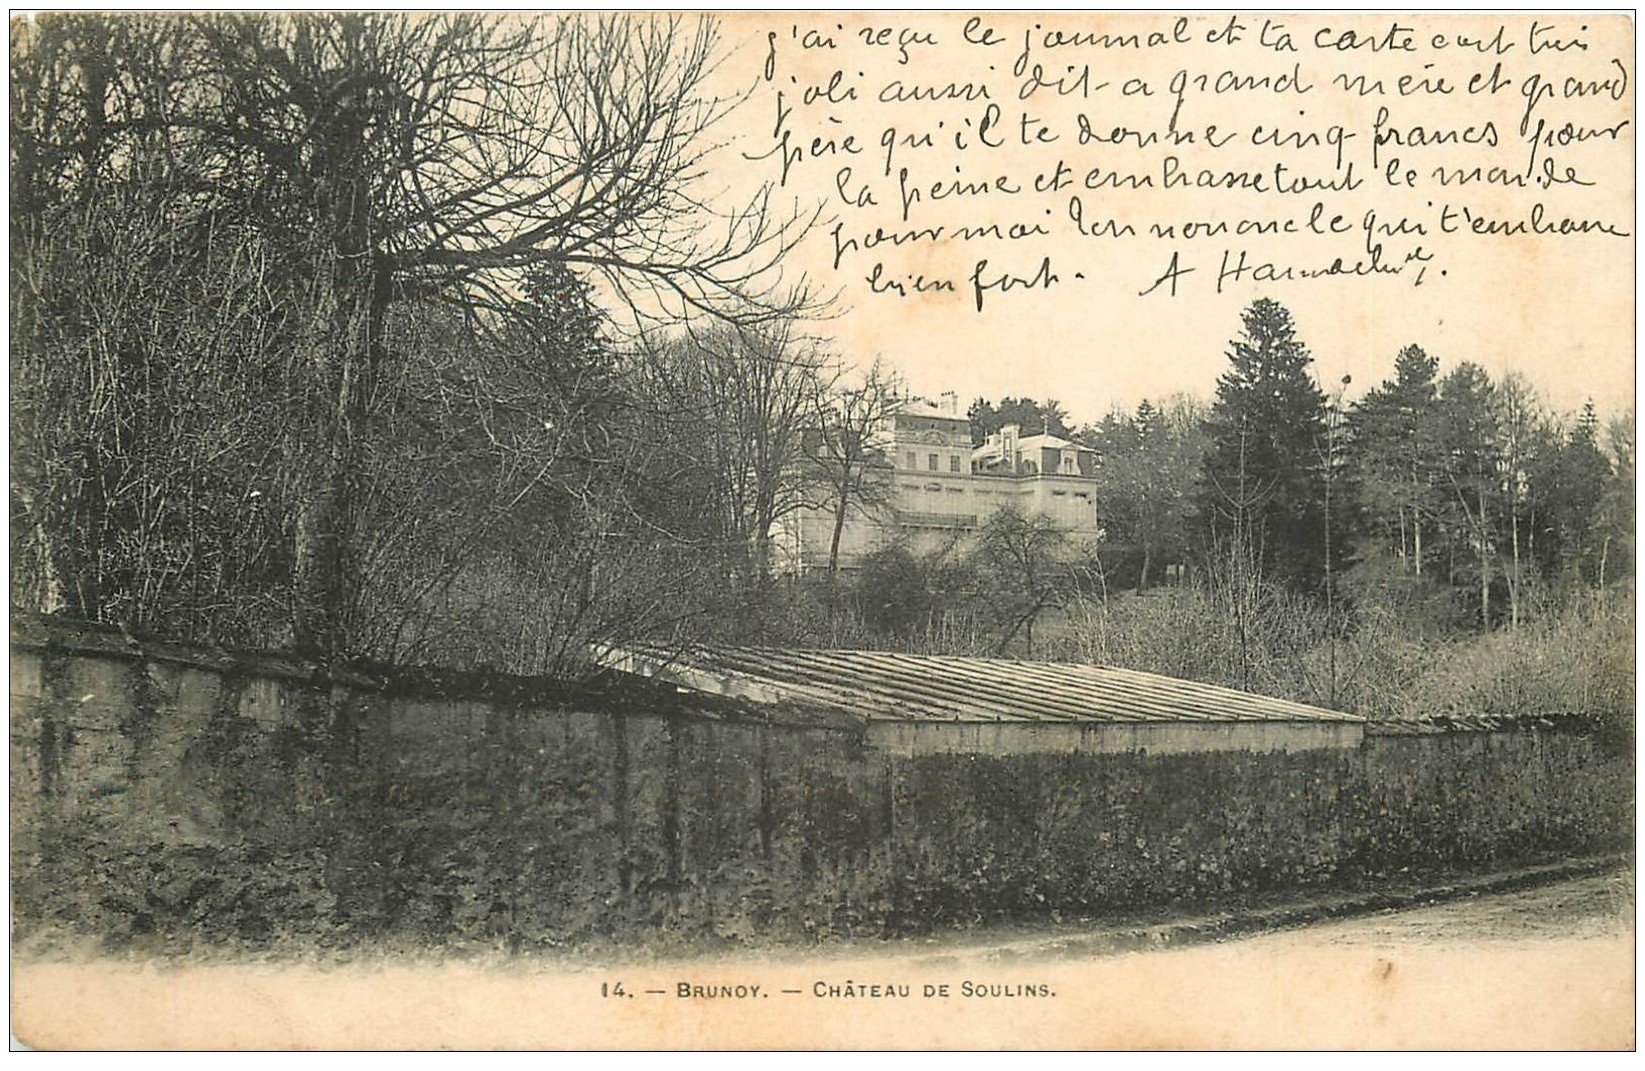 j'ai reçu le journal et ta carte est tres
joli aussi dit a grand mère et grand
père qu'il te donne cinq francs pour
la peine et embrasse tout le monde
pour moi ton non oncle qui t'embrasse
bien fort. A
14. — BRUNOY. — CHÂTEAU DE SOULINS.